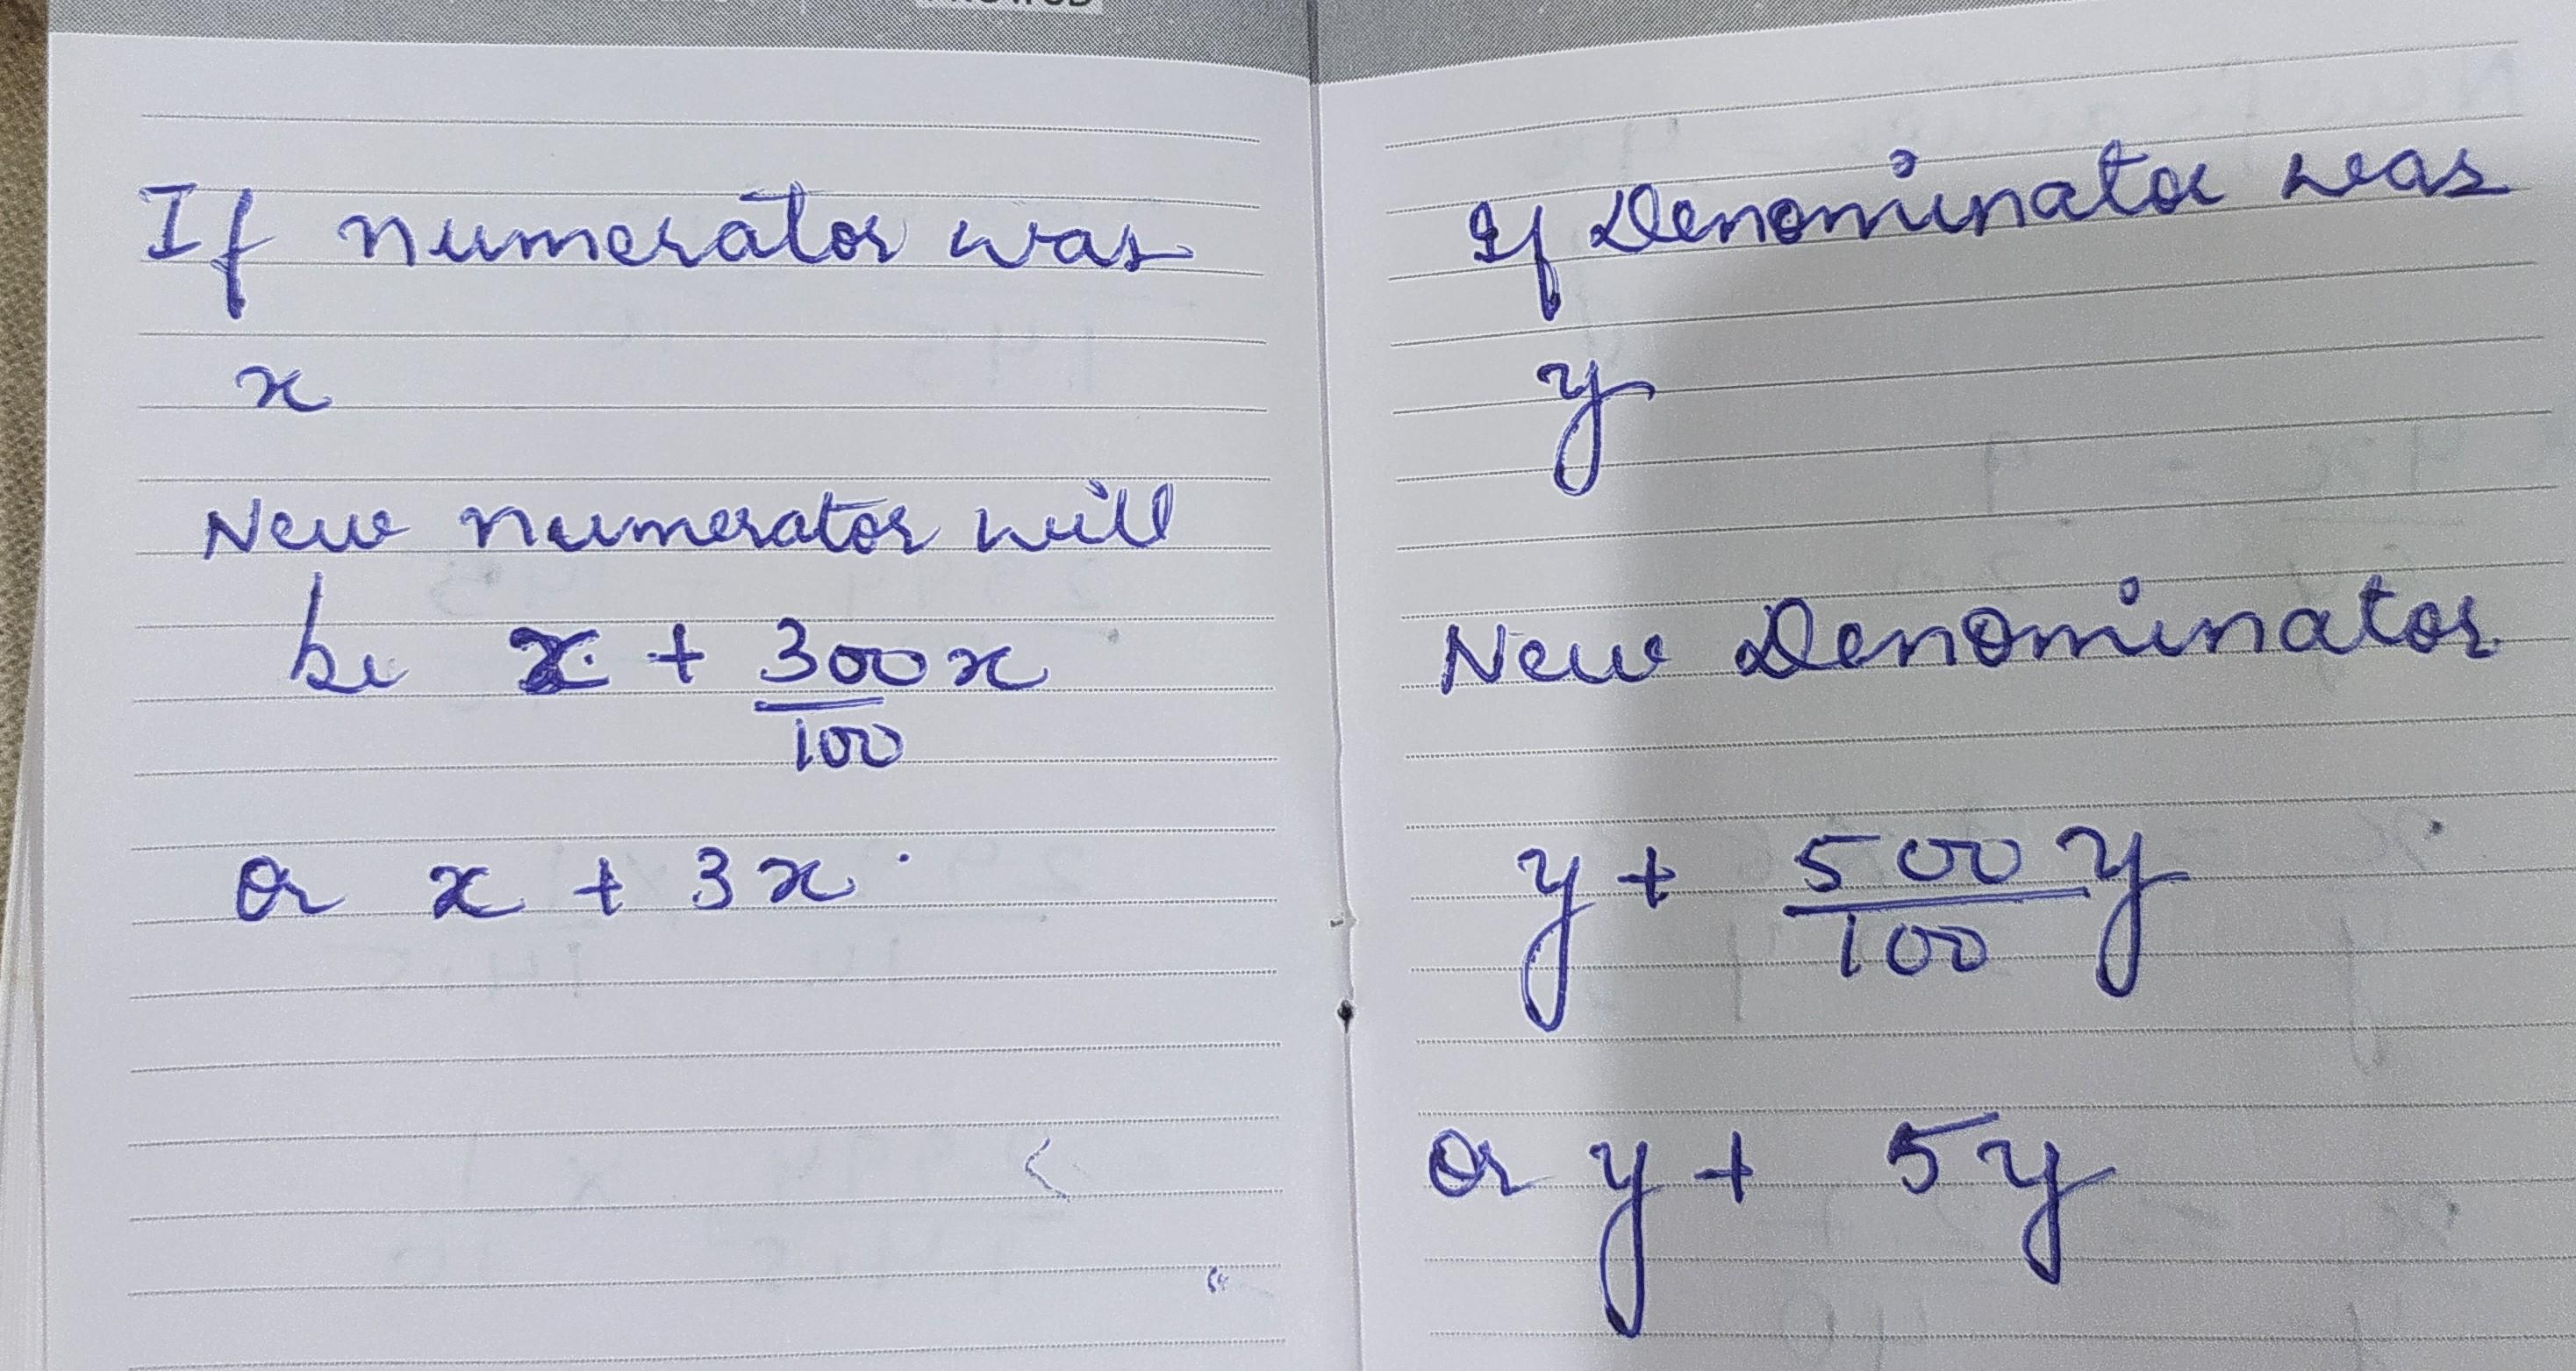 If numerator was
x
New numerator will
be x + 300x/100
or x + 3x
If Denominator was
y
New Denominator
y + 500y/100
or y + 5y